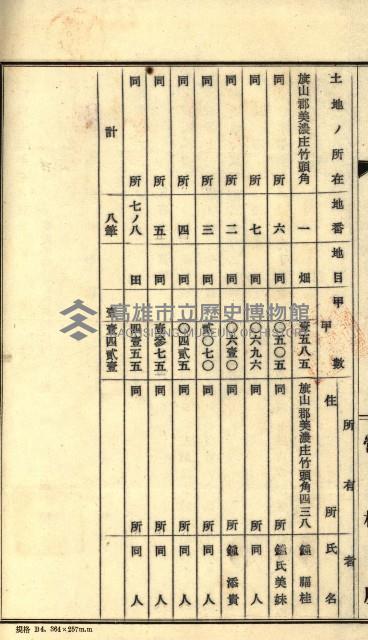 所有者
土地ノ所在 地番 地目 甲數 住所 氏名
旗山郡美濃庄竹頭角 一 畑 甲 壹五八五 旗山郡美濃庄竹頭角四三八 鍾福桂
同所 六 同 〇五〇五 同所 鍾氏美妹
同所 七 同 〇六九六 同所 同人
同所 二 同 〇六壹〇 同所 鍾添貴
同所 三 同 貳〇七〇 同所 同人
同所 四 同 〇四貳五 同所 同人
同所 五 同 壹參七五 同所 同人
同所 七ノ八 田 四壹五五 同所 同人
計 八筆 壹壹四貳壹
高雄市立歷史博物館
規格 D4. 364×257m.m